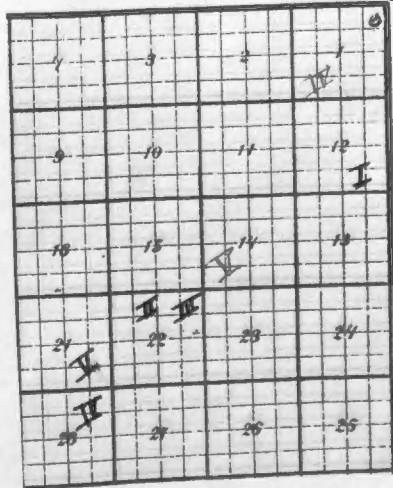 4 3 2 1
9 10 11 12
I
16 15 14 13
VI
II III
21 22 23 24
V
IV
28 27 26 25